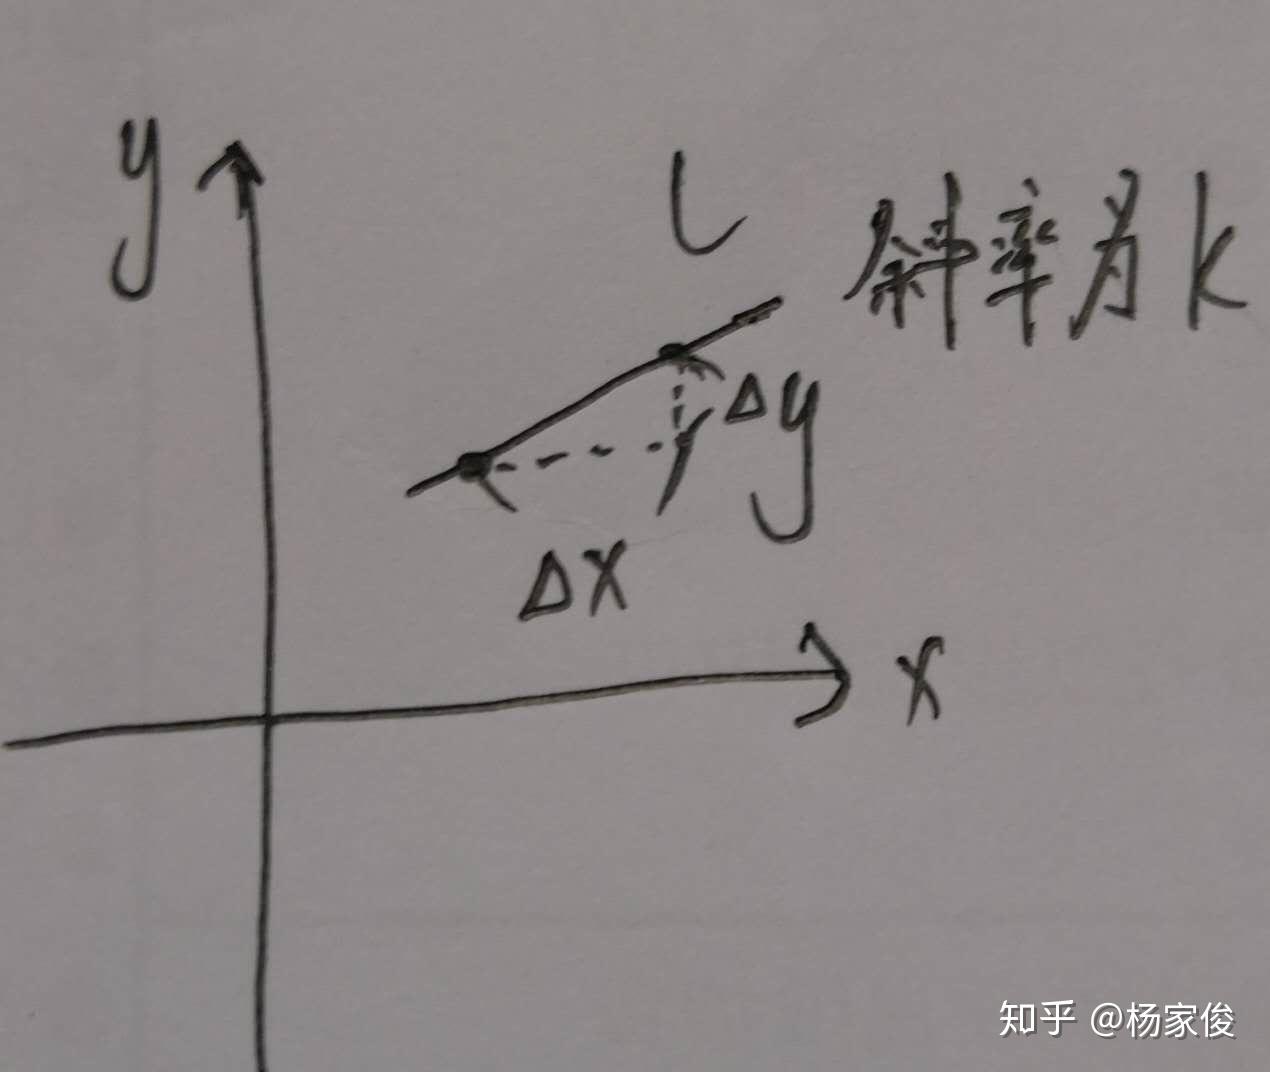 y
l
斜率为k
Δy
Δx
x
知乎 @杨家俊